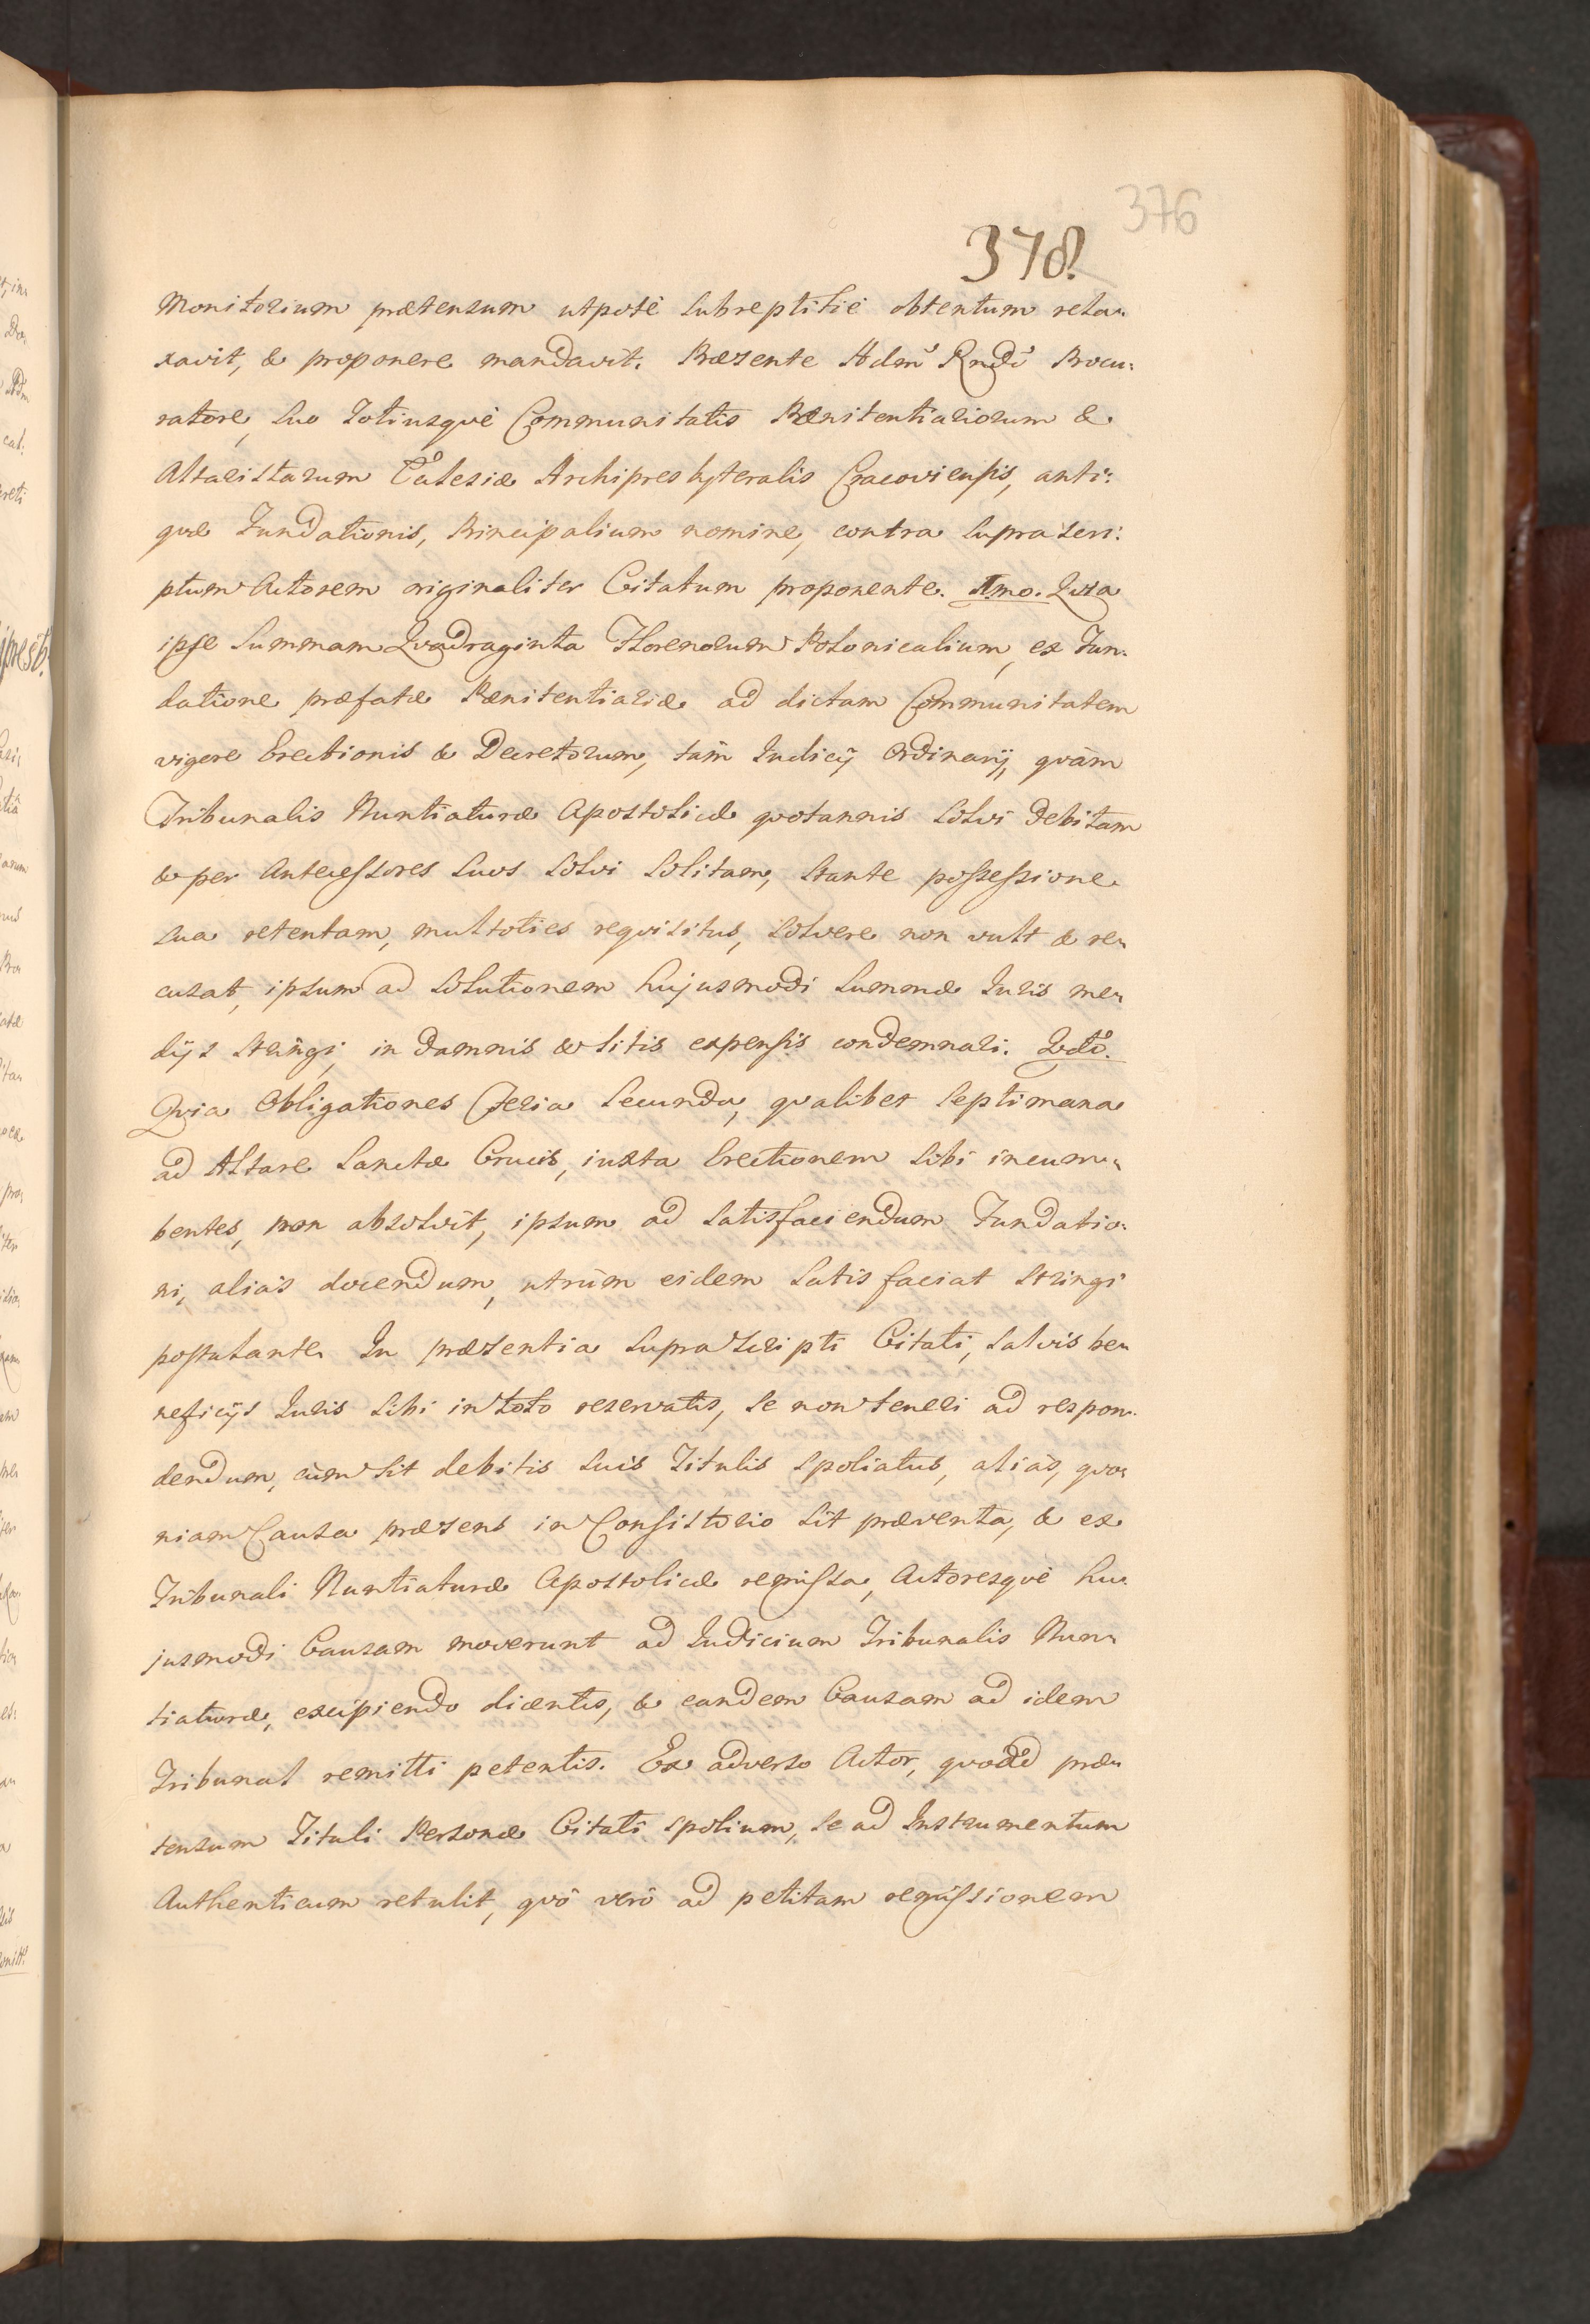 376
378.
Monitorium prætensum utpotè subreptitiè obtentum rela„
xavit, & proponere mandavit. Præsente Adm̃ Rndõ Procu:
ratore, suo totiusqvè Communitatis Pœnitentiariorum &
Altaristarum Ecclesiæ Archipresbyteralis Cracoviensis, anti:
qvæ Fundationis, Principalium nomine, contra suprascri:
ptum Actorem originaliter Citatum proponente. Imo. Qvia
ipse summam Qvadraginta Florenorum Polonicalium, ex Fun:
datione præfatæ Pœnitentiariæ ad dictam Communitatem
vigore Erectionis & Decretorum, tàm Iudicij Ordinarij, qvàm
Tribunalis Nuntiaturæ Apostolicæ qvotannis solvi debitam
& per Antecessores suos solvi solitam, stante possessione
sua retentam, multoties reqvisitus, solvere non vult & re„
cusat, ipsum ad solutionem hujusmodi summæ Iuris me„
dijs stringi, in damnis & litis expensis condemnari. 2dõ.
Qvia Obligationes Feria secunda, qvalibet septimana
ad Altare Sanctæ Crucis, iuxta Erectionem sibi incum„
bentes, non absolvit, ipsum ad satisfaciendum Fundatio:
ni, aliàs docendum, utrùm eidem satisfaciat stringi
postulante. In præsentia suprascripti Citati, salvis be„
neficijs Iuris sibi in toto reservatis, se non teneri ad respon„
dendum, cùm sit debitis suis Titulis spoliatus, aliàs, qvo„
niam Causa præsens in Consistorio sit præventa, & ex
Tribunali Nuntiaturæ Apostolicæ remissa, Actoresqvè hu„
jusmodi Causam moverunt ad Iudicium Tribunalis Nun„
tiaturæ, excipiendo dicentis, & eandem Causam ad idem
Tribunal remitti petentis. Ex adverso Actor, qvoad præ„
tensum Tituli Personæ Citati spolium, se ad Instrumentum
Authenticum retulit, qvò verò ad petitam remissionem